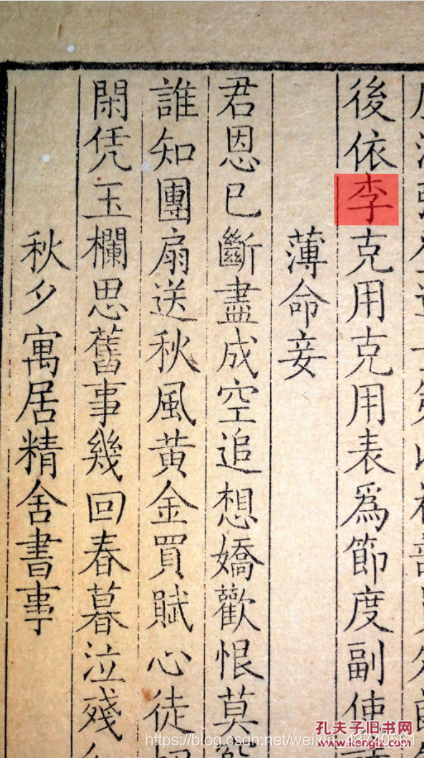 後依李克用克用表爲節度副使
薄命妾
君恩已斷盡成空追想嬌歡恨莫
誰知團扇送秋風黃金買賦心徒
閑凭玉欄思舊事幾回春暮泣殘
秋夕寓居精舍書事
孔夫子旧书网
www.kongfz.com
https://blog.csdn.net/